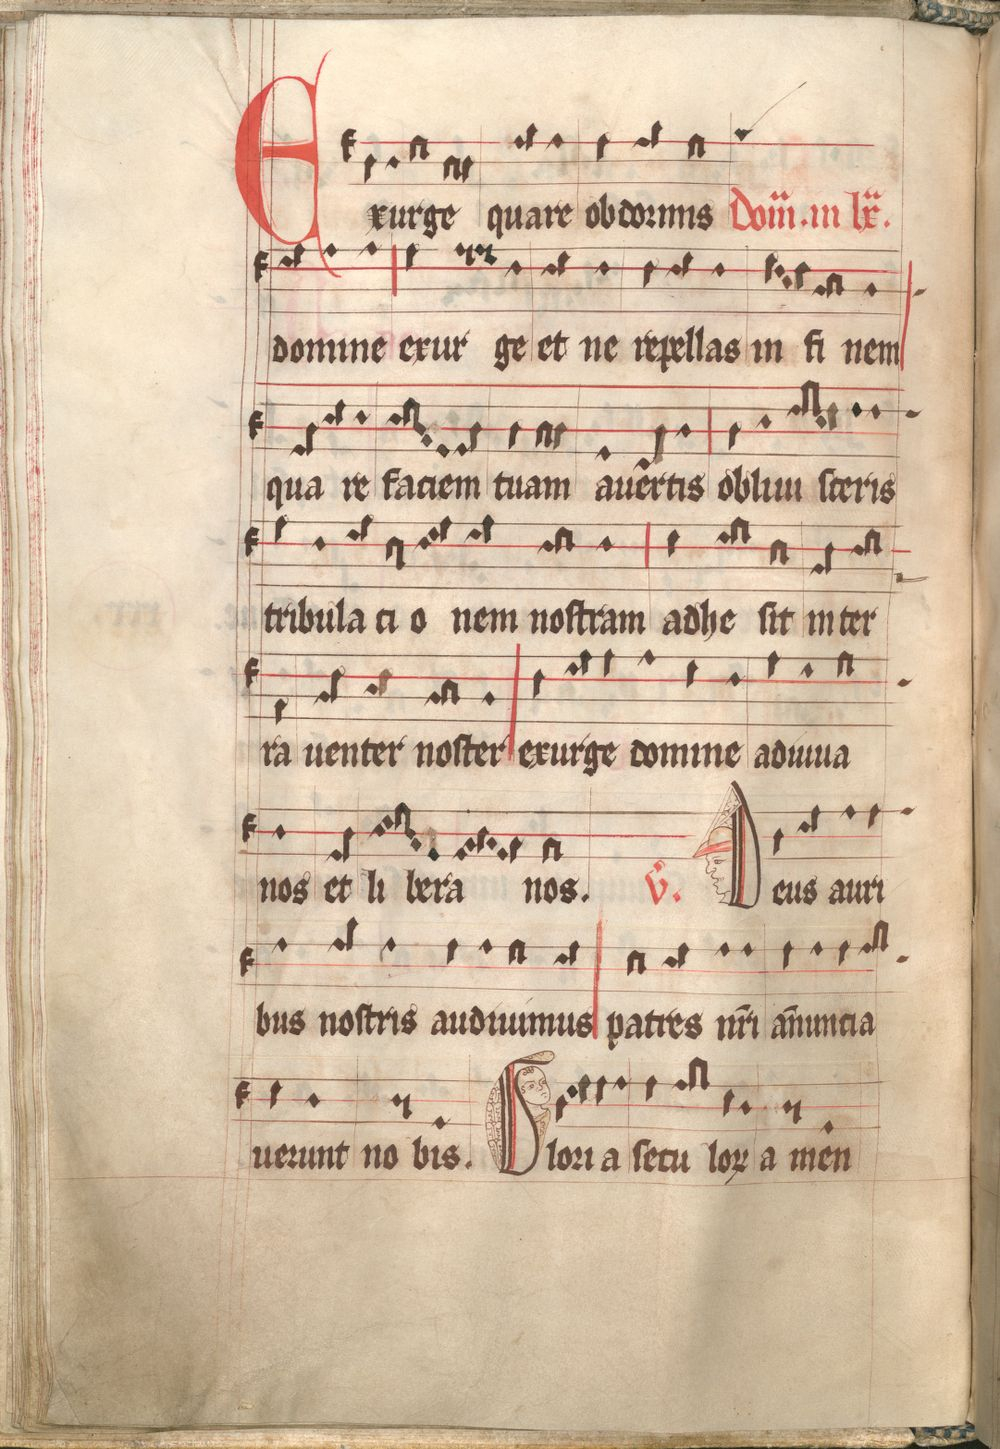 Exurge quare obdormis Dom̄. in lx̄.
domine exur ge et ne repellas in fi nem
qua re faciem tuam auertis obliui sceris
tribula ci o nem nostram adhe sit in ter
ra uenter noster exurge domine adiuua
nos et li bera nos. V. Deus auri
bus nostris audiuimus patres nr̄i an̄uncia
uerunt no bis. Glori a secu loꝝ a men